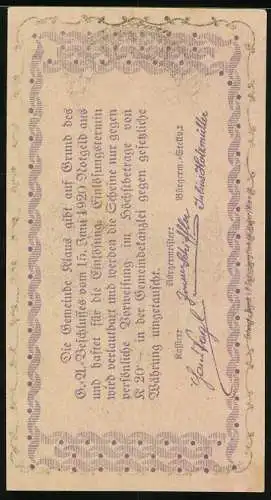 Die Gemeinde Klaus gibt auf Grund des
G.-A.-Beschlusses vom 15. Juni 1920 Notgeld aus
und haftet für die Einlösung. Einlösungstermin
wird verlautbart und werden die Scheine nur gegen
persönliche Vorweisung im Höchstbetrage von
K 20·— in der Gemeindekanzlei gegen gesetzliche
Währung umgetauscht.
Kassier: Bürgermeister: Bürgerm.-Stellv.: